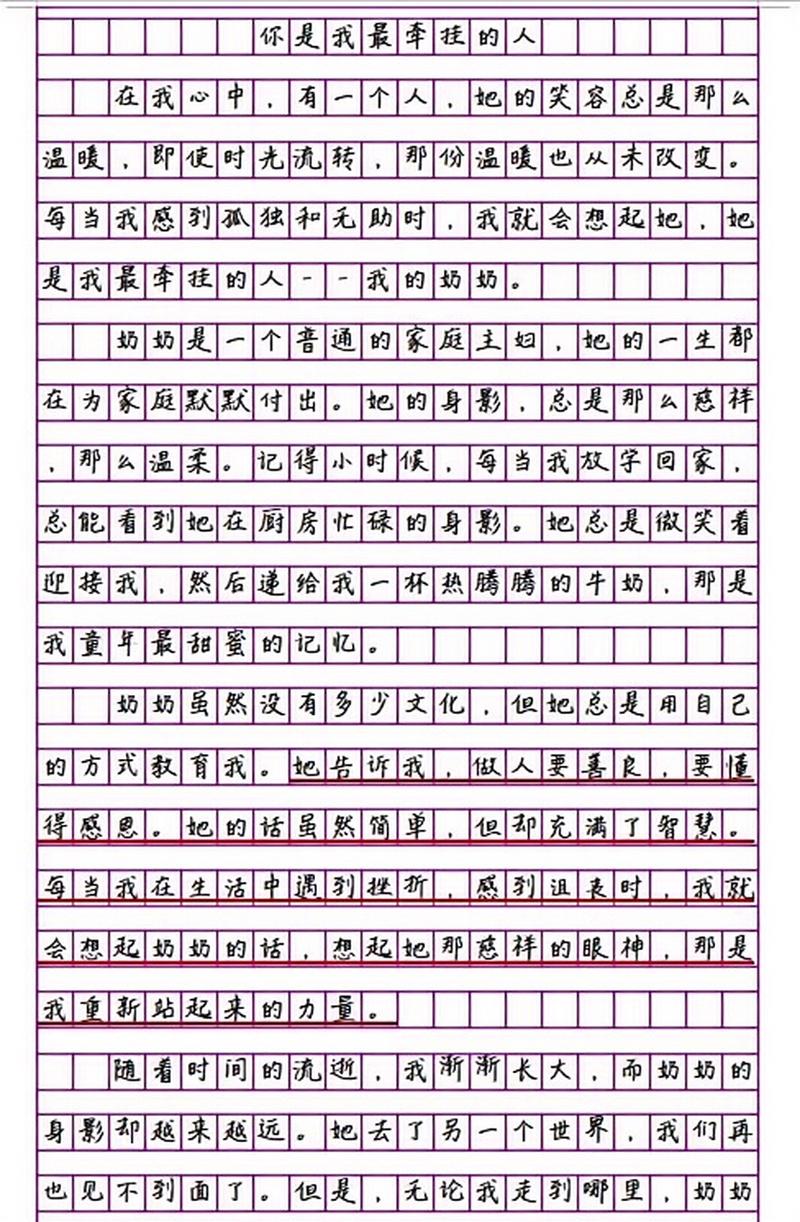 你是我最牵挂的人
在我心中，有一个人，她的笑容总是那么
温暖，即使时光流转，那份温暖也从未改变。
每当我感到孤独和无助时，我就会想起她，她
是我最牵挂的人--我的奶奶。
奶奶是一个普通的家庭主妇，她的一生都
在为家庭默默付出。她的身影，总是那么慈祥
，那么温柔。记得小时候，每当我放学回家，
总能看到她在厨房忙碌的身影。她总是微笑着
迎接我，然后递给我一杯热腾腾的牛奶，那是
我童年最甜蜜的记忆。
奶奶虽然没有多少文化，但她总是用自己
的方式教育我。她告诉我，做人要善良，要懂
得感恩。她的话虽然简单，但却充满了智慧。
每当我在生活中遇到挫折，感到沮丧时，我就
会想起奶奶的话，想起她那慈祥的眼神，那是
我重新站起来的力量。
随着时间的流逝，我渐渐长大，而奶奶的
身影却越来越远。她去了另一个世界，我们再
也见不到面了。但是，无论我走到哪里，奶奶